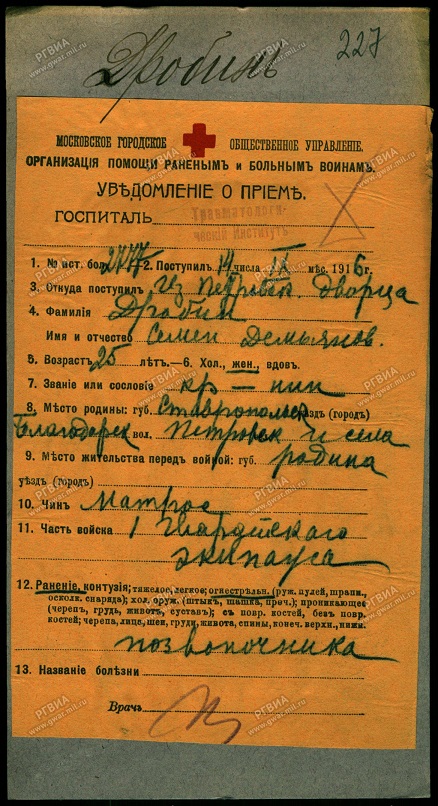 Дробинъ
227
МОСКОВСКОЕ ГОРОДСКОЕ ОБЩЕСТВЕННОЕ УПРАВЛЕНІЕ.
ОРГАНИЗАЦІЯ ПОМОЩИ РАНЕНЫМЪ и БОЛЬНЫМЪ ВОИНАМЪ.
УВѢДОМЛЕНІЕ О ПРІЕМѢ.
ГОСПИТАЛЬ
Травматологи-
ческій Институтъ
1. № ист. бол. 2. Поступилъ 14 числа IX мѣс. 1916 г.
3. Откуда поступилъ Из Петровск. Дворца
4. Фамилія Дробин
Имя и отчество Семен Демьянов.
5. Возрастъ 25 лѣтъ.—6. Хол., жен., вдов.
7. Званіе или сословіе кр — нин
8. Мѣсто родины: губ. Ставропольск уѣздъ (городъ)
Благодарск вол. Петровск и села
9. Мѣсто жительства передъ войной: губ. родина
уѣздъ (городъ)
10. Чинъ Матрос
11. Часть войска 1 Гвардейского
экипажа
12. Раненіе, контузія; тяжелое, легкое; огнестрѣльн. (руж. пулей, шрапн.,
осколк. снаряда); хол. оруж. (штыкъ, шашка, проч.); проникающее
(черепъ, грудь, животъ, суставъ); съ повр. костей, безъ повр.
костей; черепа, лица, шеи, груди, живота, спины, конеч. верхн., нижн.
позвоночника
13. Названіе болѣзни
Врачъ
РГВИА
www.gwar.mil.ru